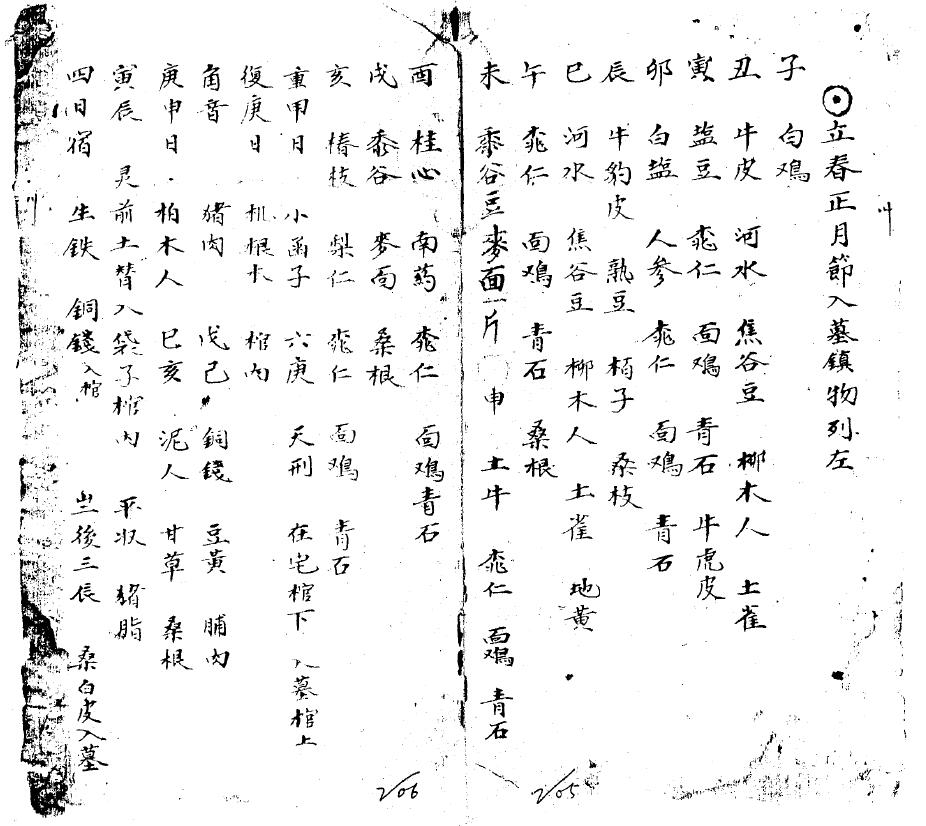 ⊙立春正月節入墓鎮物列左
子 白鳮
丑 牛皮 河水 焦谷豆 柳木人 土雀
寅 盐豆 桃仁 面鳮 青石 牛虎皮
卯 白盐 人參 桃仁 面鳮 青石
辰 牛豹皮 熟豆 栢子 桑枝
巳 河水 焦谷豆 柳木人 土雀 地黄
午 桃仁 面鳮 青石 桑根
未 黍谷豆 麥面一片 申 土牛 桃仁 面鳮 青石
酉 桂心 南药 桃仁 面鳮 青石
戌 黍谷 麥面 桑根
亥 椿枝 梨仁 桃仁 面鳮 青石
重甲日 小函子 六庚 天刑 在宅棺下 入墓棺上
復庚日 根木 棺内
角音 猪肉 戊己 銅錢 豆黄 脯肉
庚申日 柏木人 巳亥 泥人 甘草 桑根
寅辰 灵前土替入袋子棺内 平収 猪脂
四日宿 生鉄 銅錢入棺 後三辰 桑白皮入墓
205
206